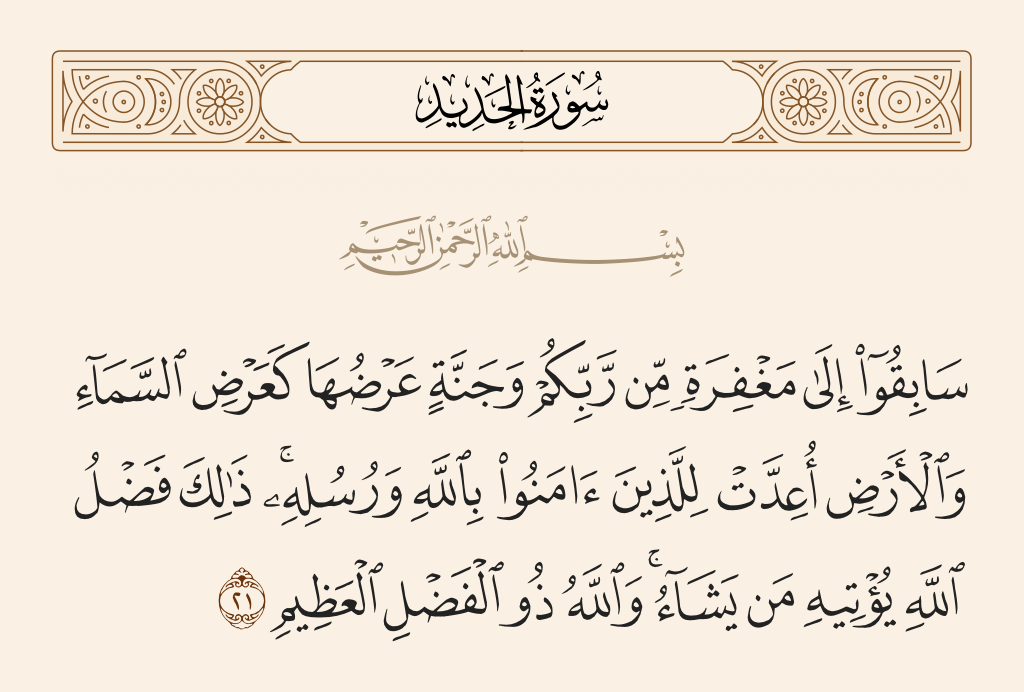 سُورَةُ الحَدِيدِ
بِسْمِ ٱللَّهِ ٱلرَّحْمَٰنِ ٱلرَّحِيمِ
سَابِقُوٓا۟ إِلَىٰ مَغْفِرَةٍ مِّن رَّبِّكُمْ وَجَنَّةٍ عَرْضُهَا كَعَرْضِ ٱلسَّمَآءِ
وَٱلْأَرْضِ أُعِدَّتْ لِلَّذِينَ ءَامَنُوا۟ بِٱللَّهِ وَرُسُلِهِۦ ۚ ذَٰلِكَ فَضْلُ
ٱللَّهِ يُؤْتِيهِ مَن يَشَآءُ ۚ وَٱللَّهُ ذُو ٱلْفَضْلِ ٱلْعَظِيمِ ٢١